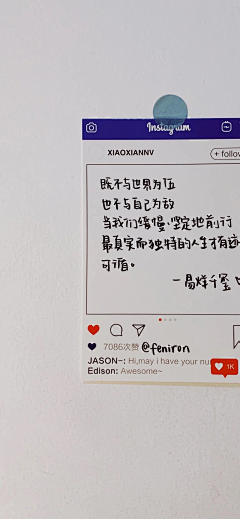 Instagram
XIAOXIANNV
+ follow
既不与世界为伍
也不与自己为敌
当我们缓慢、坚定地前行
最真实而独特的人生才有迹
可循。
一易烊千玺
7086次赞 @feniron
1K
JASON~: Hi,may i have your nu
Edison: Awesome~